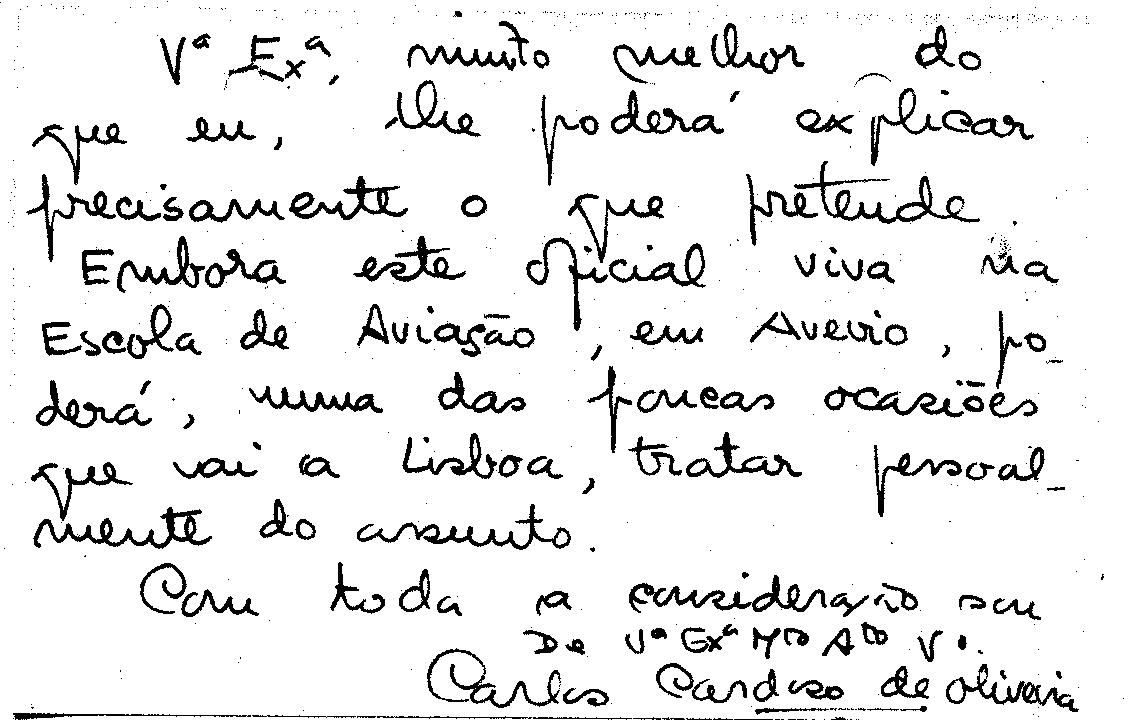 Vª Exª, muito melhor do
que eu, lhe poderá explicar
precisamente o que pretende.
Embora este oficial viva na
Escola de Aviação, em Aveiro, po-
derá, numa das poucas ocasiões
que vai a Lisboa, tratar pessoal-
mente do assunto.
Com toda a consideração sou
De Vª Exª Mto Ato Vº.
Carlos Cardoso de Oliveira